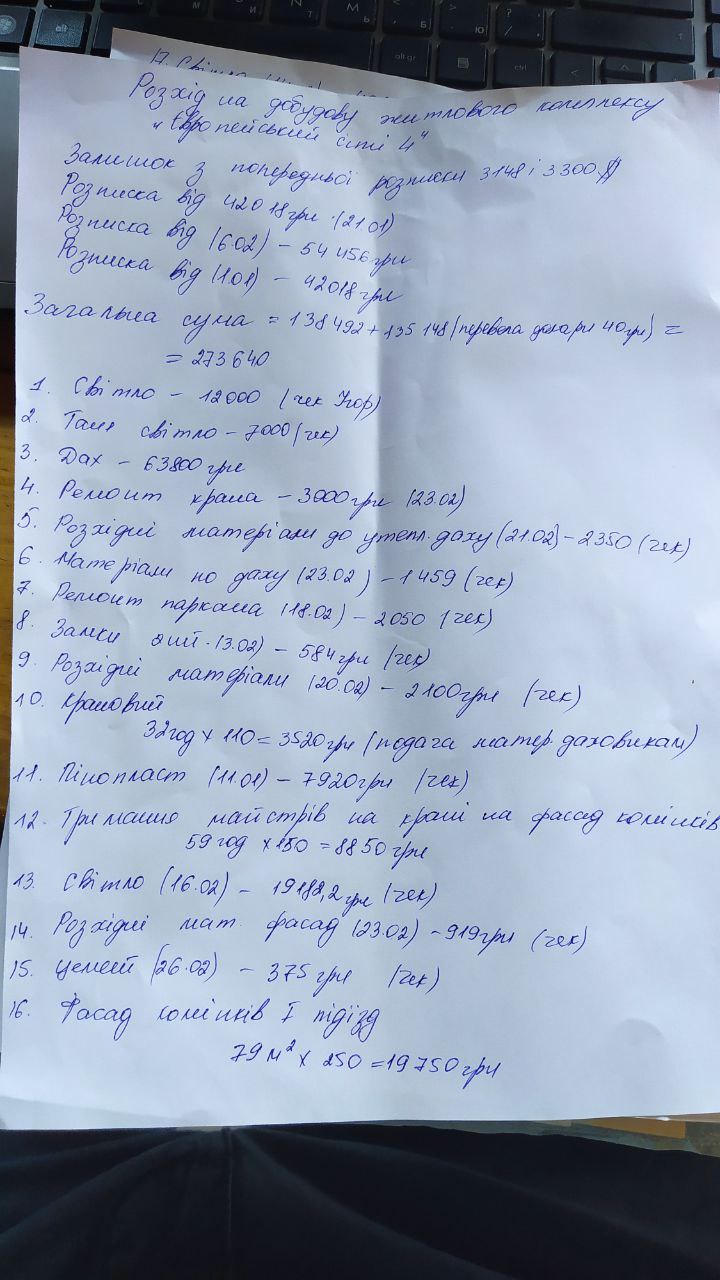 17. Світло
Розхід на добудову житлового комплексу
"Європейський сіті 4"
Залишок з попередньої розписки 3148 і 3300 $
Розписка від 42018грн (21.01)
Розписка від (6.02) – 54 456грн
Розписка від (1.01) – 42018 грн
Загальна сума = 138 492 + 135 148 (перевела долари 40грн) =
= 273 640
1. Світло – 12000 (чек Ігор)
2. Таня світло – 7000 (чек)
3. Дах – 63800 грн
4. Ремонт крана – 3000 грн (23.02)
5. Розхідні матеріали до утепл. даху (21.02) – 2350 (чек)
6. Матеріали по даху (23.02) – 1459 (чек)
7. Ремонт паркана (18.02) – 2050 (чек)
8. Замки (13.02) – 584грн (чек)
9. Розхідні матеріали (20.02) – 2100грн (чек)
10. Крановий
32год х 110 = 3520грн (подача матер. даховикам)
11. Пінопласт (11.01) – 7920грн (чек)
12. Тримання майстрів на крані на фасад комінків
59 год х 150 = 8850 грн
13. Світло (16.02) – 19182,2 грн (чек)
14. Розхідні мат. фасад (23.02) – 919грн (чек)
15. Цемент (26.02) – 375 грн (чек)
16. Фасад комінків I підїзд
79 м² х 250 = 19 750 грн